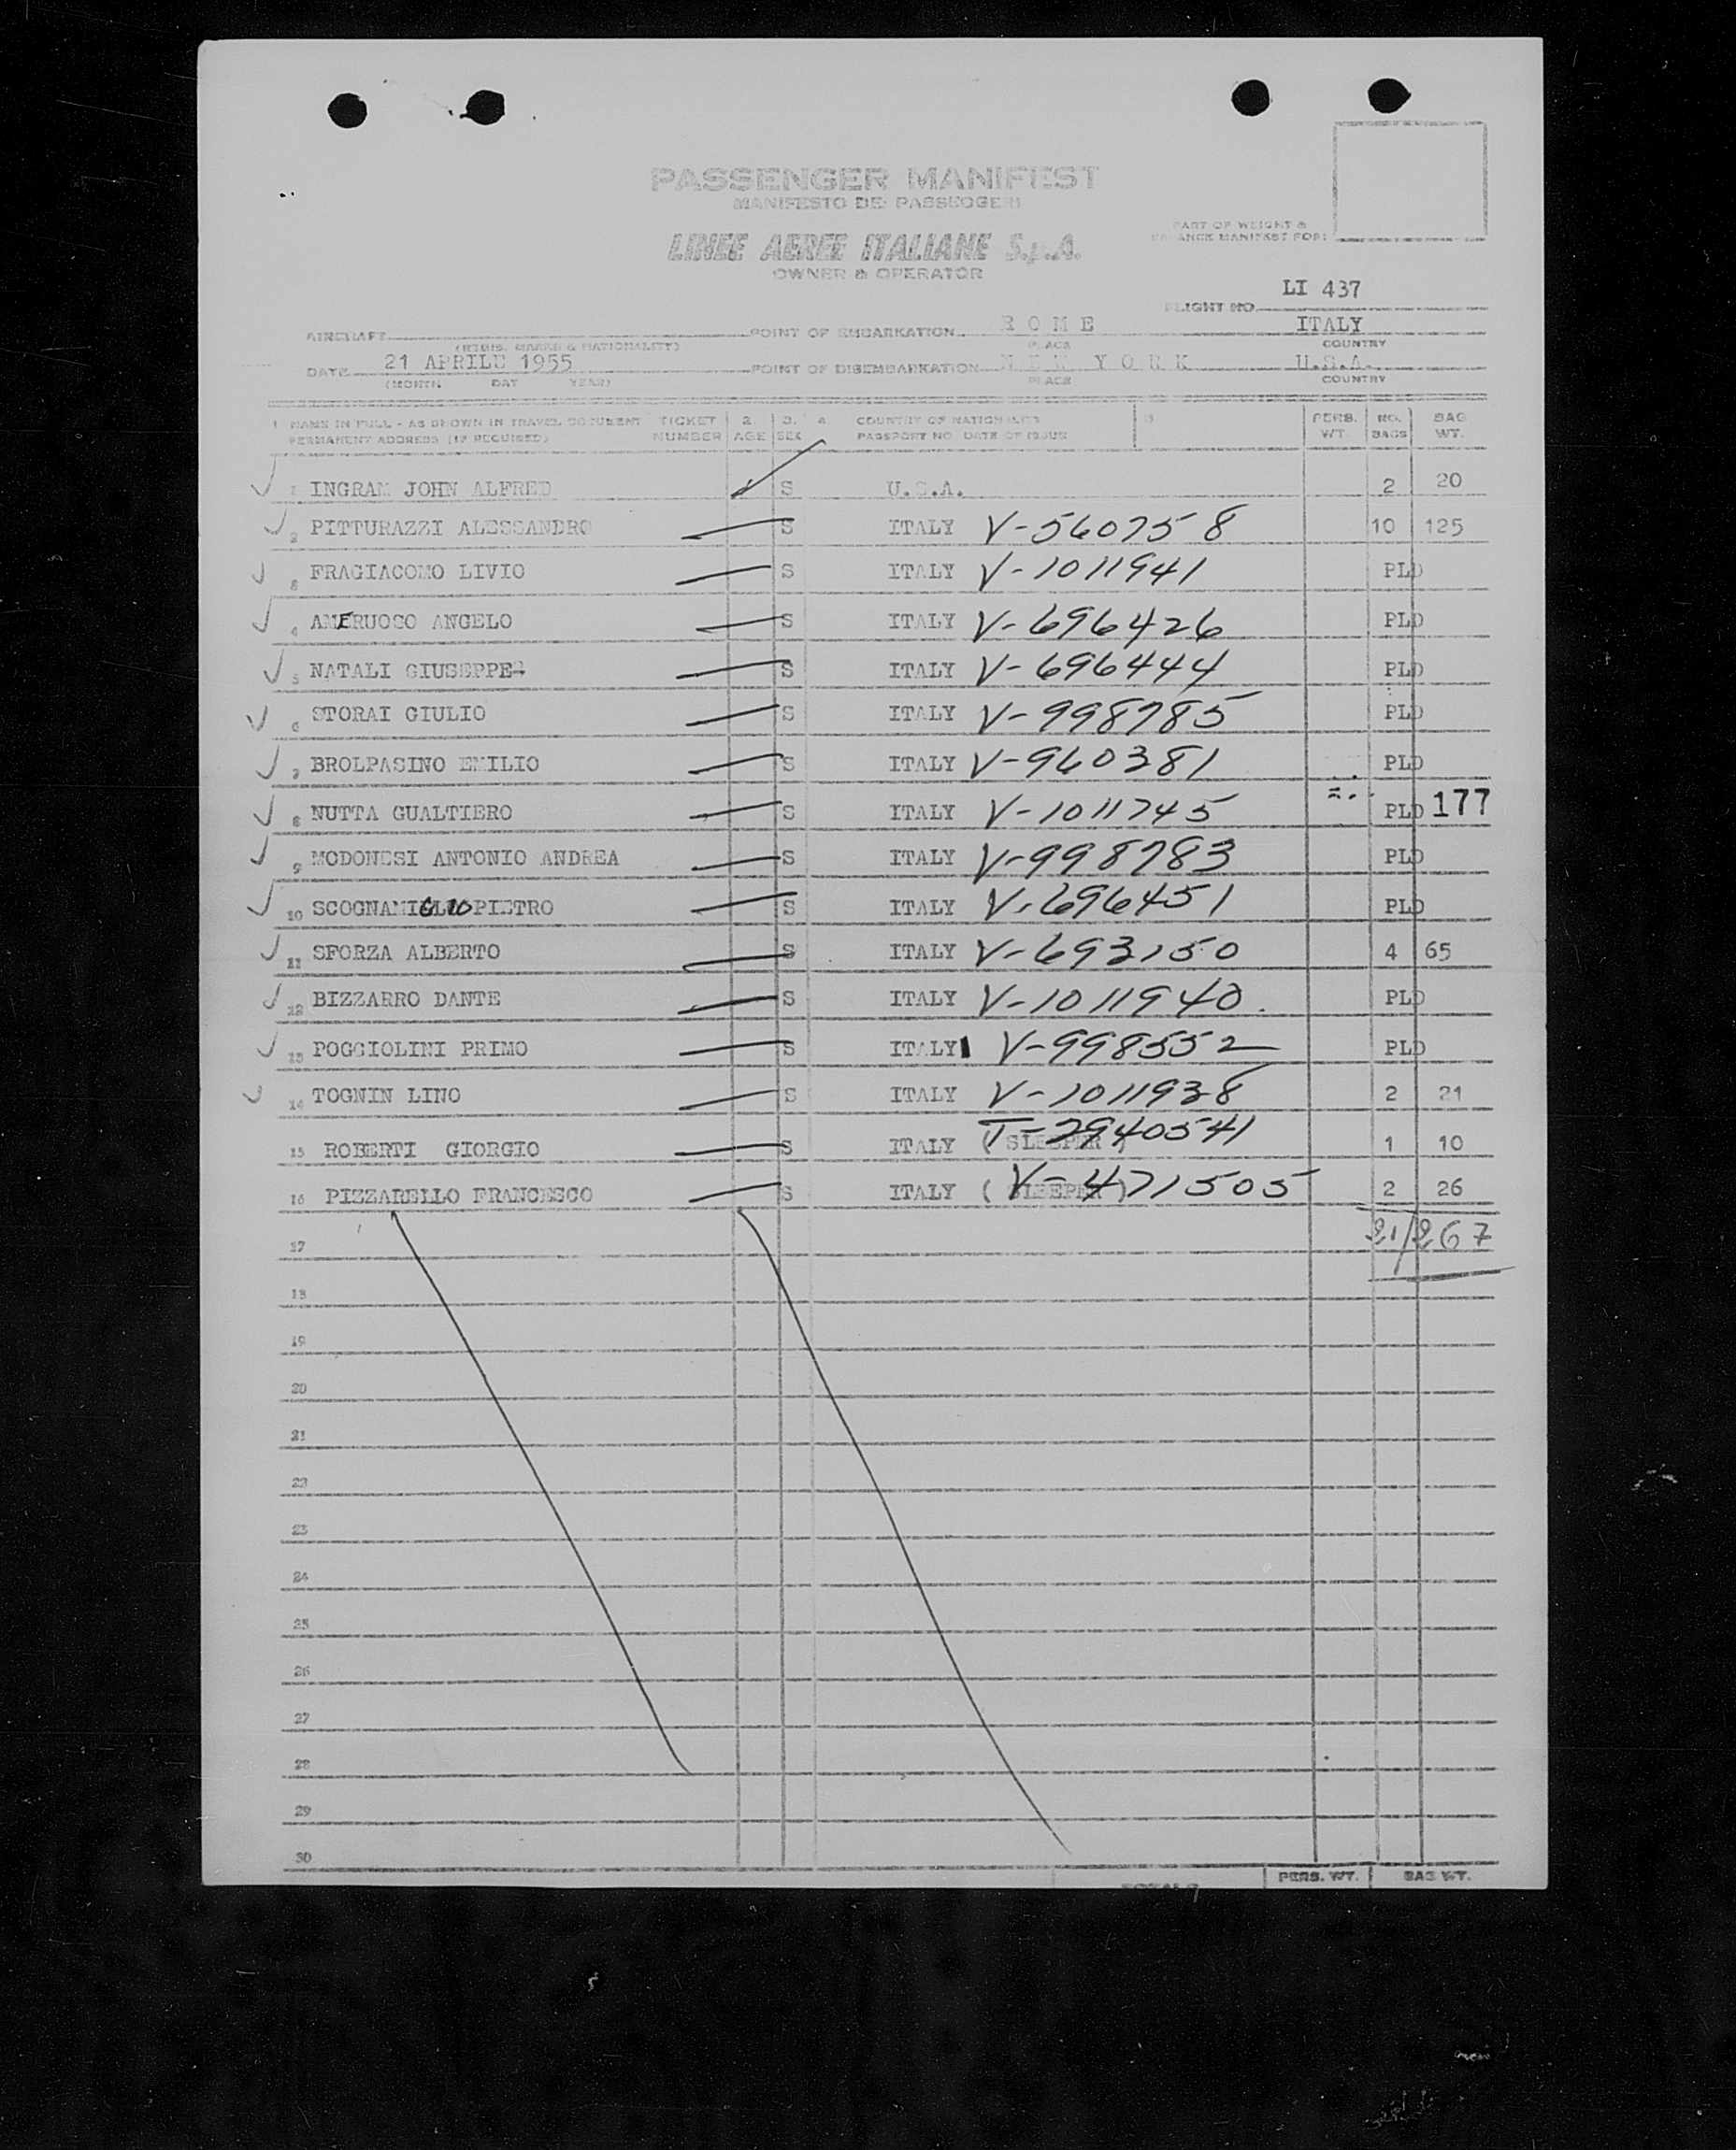 PASSENGER MANIFEST
MANIFESTO DEI PASSEGGERI
LINEE AEREE ITALIANE S.p.A.
OWNER & OPERATOR
PART OF WEIGHT &
BALANCE MANIFEST FOR:
FLIGHT NO. LI 437
AIRCRAFT POINT OF EMBARKATION ROME ITALY
(REGIS. MARKS & NATIONALITY) PLACE COUNTRY
DATE 21 APRILE 1955 POINT OF DISEMBARKATION NEW YORK U.S.A.
(MONTH DAY YEAR) PLACE COUNTRY
1 NAME IN FULL - AS SHOWN IN TRAVEL DOCUMENT TICKET 2. 3. 4 COUNTRY OF NATIONALITY 5 PERS. NO. BAG
PERMANENT ADDRESS (IF REQUIRED) NUMBER AGE SEX PASSPORT NO. DATE OF ISSUE WT. BAGS WT.
1 INGRAM JOHN ALFRED S U.S.A. 2 20
2 PITTURAZZI ALESSANDRO S ITALY V-560758 10 125
3 FRAGIACOMO LIVIO S ITALY V-1011941 PLD
4 AMERUOSO ANGELO S ITALY V-696426 PLD
5 NATALI GIUSEPPE S ITALY V-696444 PLD
6 STORAI GIULIO S ITALY V-998785 PLD
7 BROLPASINO EMILIO S ITALY V-960381 PLD
8 NUTTA GUALTIERO S ITALY V-1011745 PLD 177
9 MODONESI ANTONIO ANDREA S ITALY V-998783 PLD
10 SCOGNAMIGLIO PIETRO S ITALY V-696451 PLD
11 SFORZA ALBERTO S ITALY V-693150 4 65
12 BIZZARRO DANTE S ITALY V-1011940 PLD
13 POGGIOLINI PRIMO S ITALY V-998552 PLD
14 TOGNIN LINO S ITALY V-1011938 2 21
15 ROBERTI GIORGIO S ITALY (SLEEPER) T-2940541 1 10
16 PIZZARELLO FRANCESCO S ITALY (SLEEPER) V-471505 2 26
17 21/267
18
19
20
21
22
23
24
25
26
27
28
29
30
TOTALS PERS. WT. BAG WT.